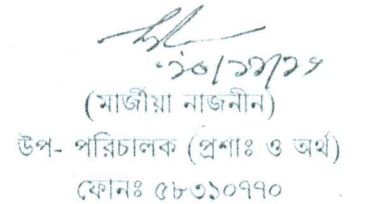 ২০/১১/২৭
(মার্জীয়া নাজনীন)
উপ- পরিচালক (প্রশাঃ ও অর্থ)
ফোনঃ ৫৮৩১০৭৭০